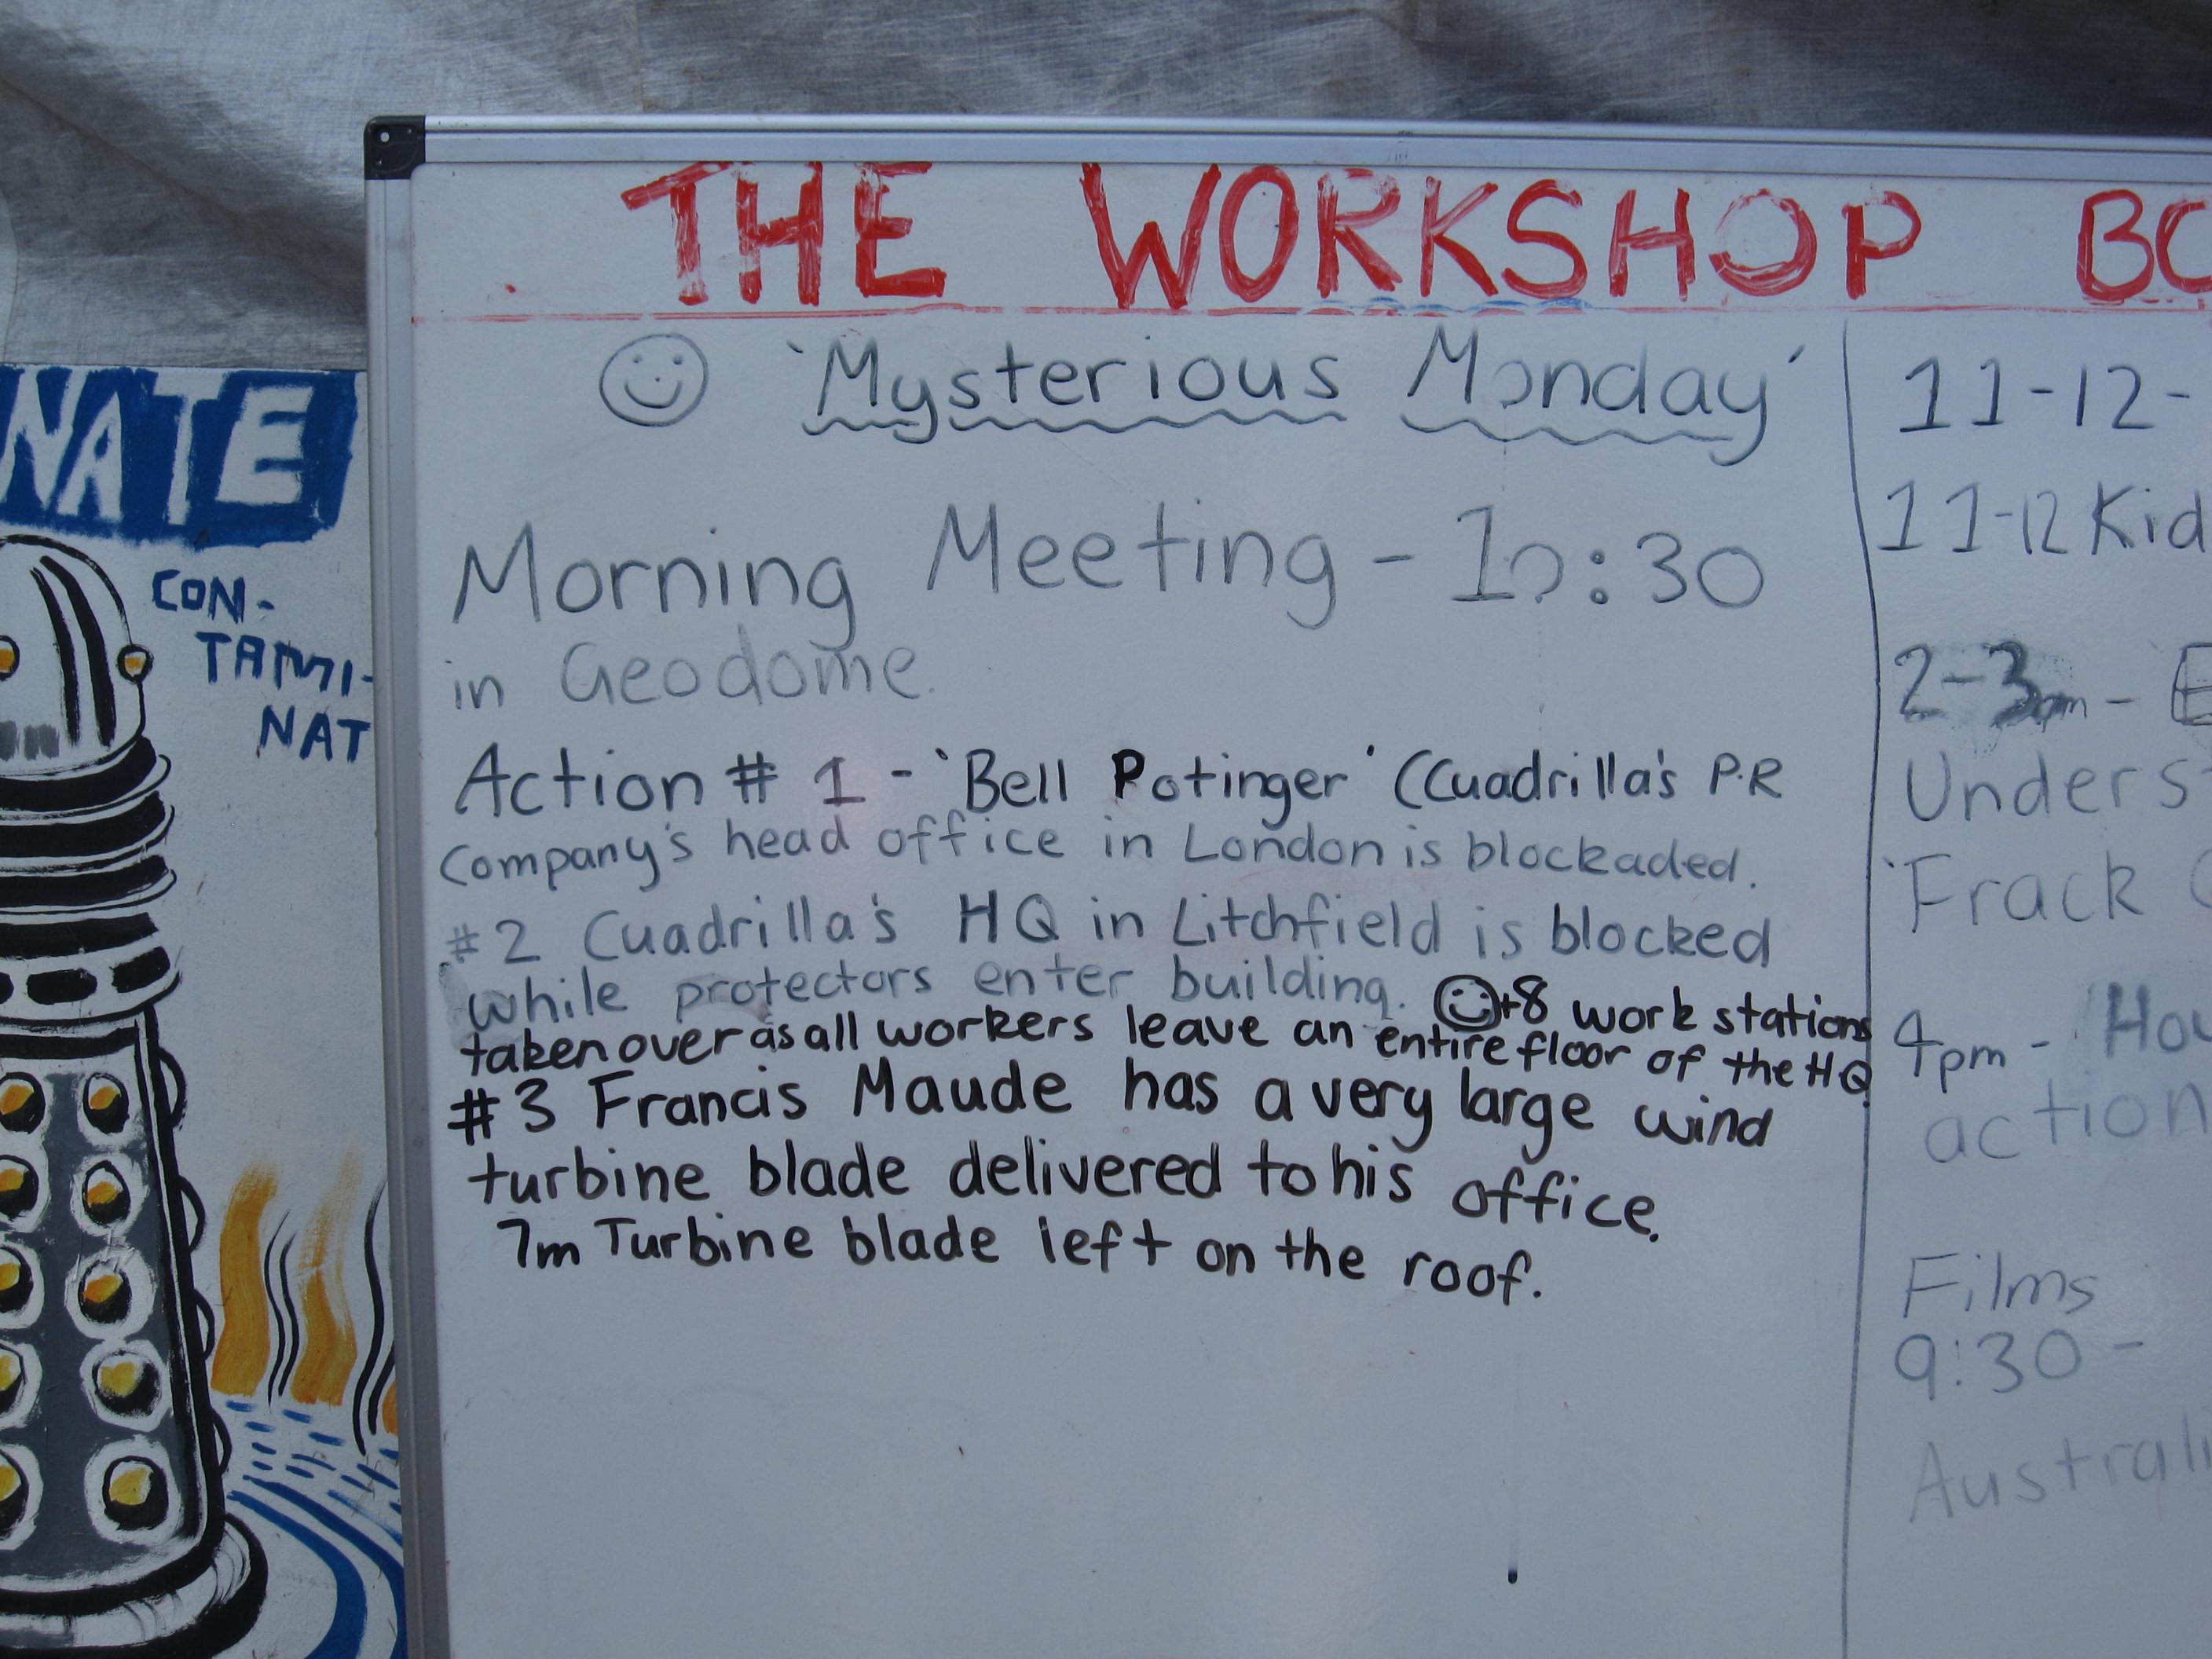 THE WORKSHOP BO
'Mysterious Monday'
Morning Meeting - 10:30
in Geodome.
Action # 1 - 'Bell Potinger' (Cuadrilla's P.R
Company's head office in London is blockaded.
#2 Cuadrilla's HQ in Litchfield is blocked
while protectors enter building. +8 work stations
taken over as all workers leave an entire floor of the HQ.
#3 Francis Maude has a very large wind
turbine blade delivered to his office.
7m Turbine blade left on the roof.
11-12-
11-12 Kid
2-3pm - E
Underst
'Frack
4pm - How
action
Films
9:30 -
Australi
NATE
CON-
TAMI-
NAT